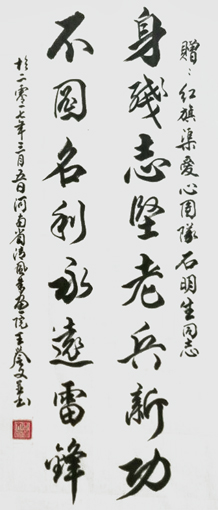 赠：红旗渠爱心团队石明生同志
身残志坚老兵新功
不图名利永远雷锋
於二零一七年三月五日河南省清风书画院王